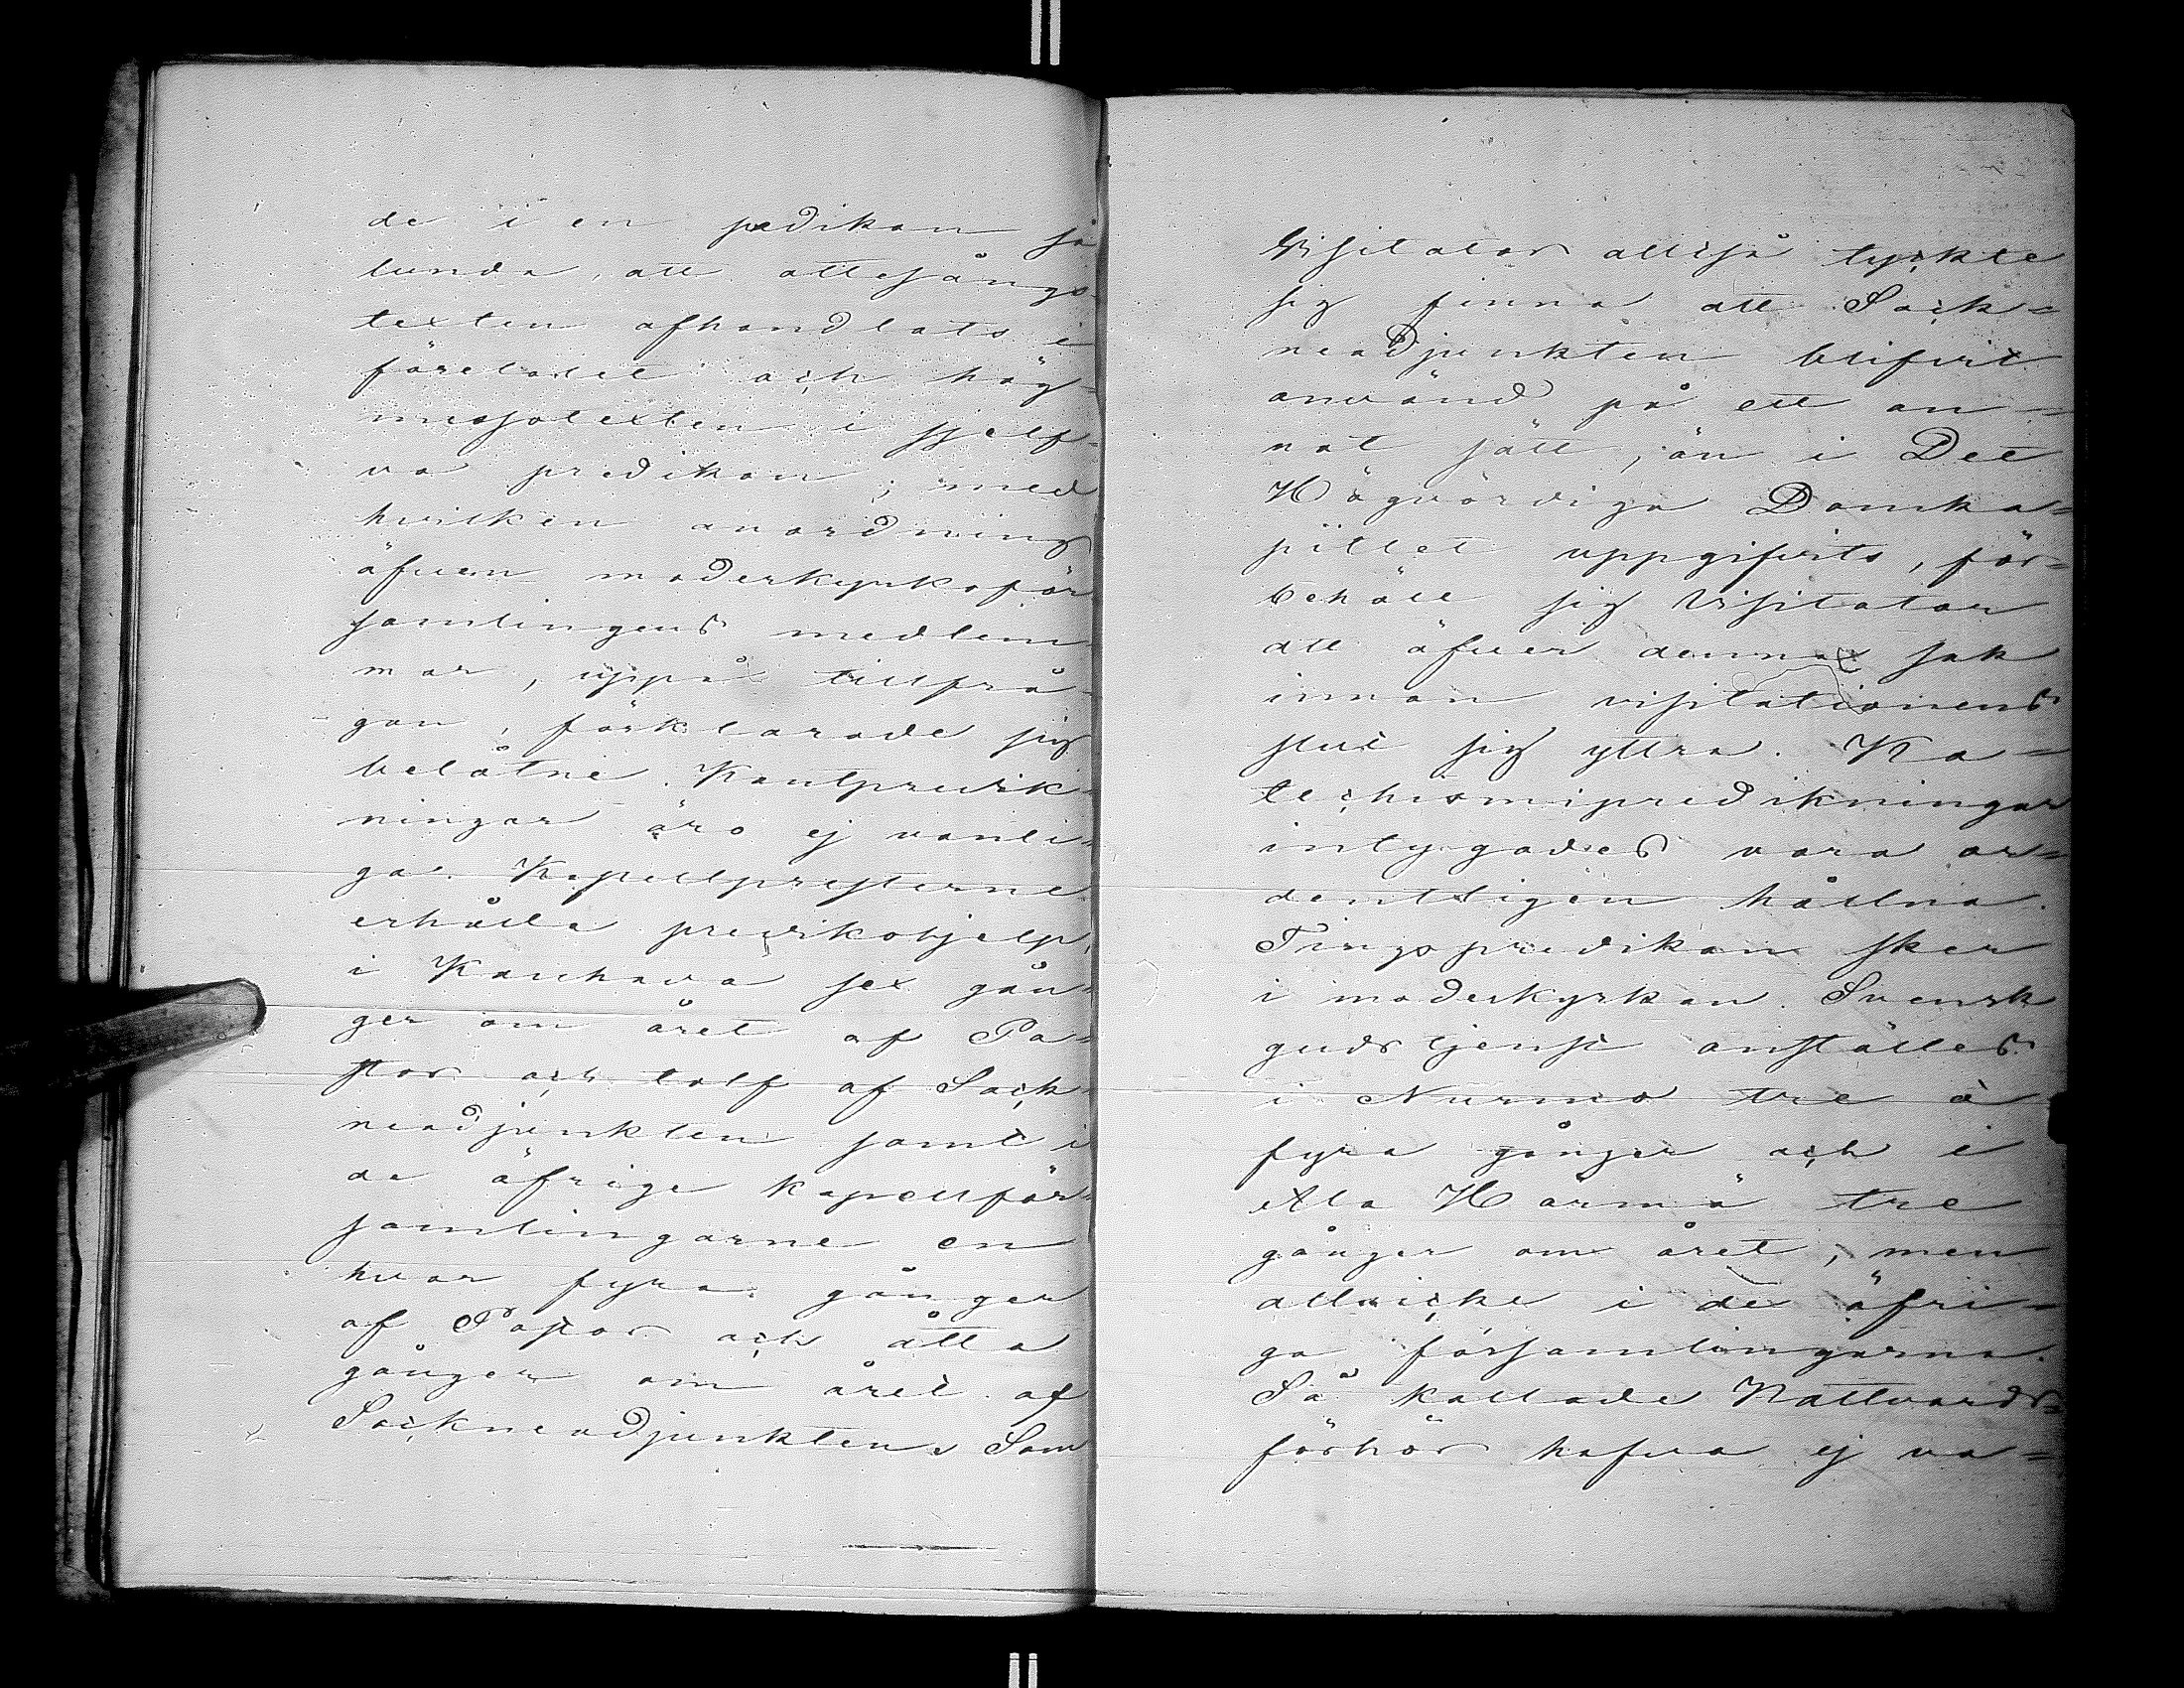 de i en predikan så
lunda, att ottesångs-
texten afhandlats i
företalet och hög-
messotexten i sjelf-
va predikan; med
hvilken anordning
äfven moderkyrkoför
samlingens medlem-
mar, uppå tillfrå-
gan, förklarade sig
belåtne. Kautpredik-
ningar äro ej vanli-
ga. Kapellpresterne
erhålla predikohjelp,
i Kauhava sex gån-
ger om året af Pa-
stor och tolf af Sock-
neadjunkten samt i
de öfrige kapellför-
samlingarne en
hvar fyra gånger
af Pastor och åtta
gånger om året af
Sockneadjunkten. Som
Visitator alltså tyckte
sig finna att Sock=
neadjunkten blifvit
använd på ett an=
nat sätt, än i Det
Högvördiga Domka=
pitlet uppgifvits, för=
behöll sig Visitator
att öfver denna sak
innan visitationens
slut sig yttra. Ka=
techismipredikningar
intygades vara or=
dentligen hållna.
Tingspredikan sker
i moderkyrkan. Svensk
gudstjenst anställes
i Nurmo tre à
fyra gånger och i
Ala Härmä tre
gånger om året, men
allsicke i de öfri=
ga församlingarna.
Så kallade Nattvards=
förhör hafva ej va=